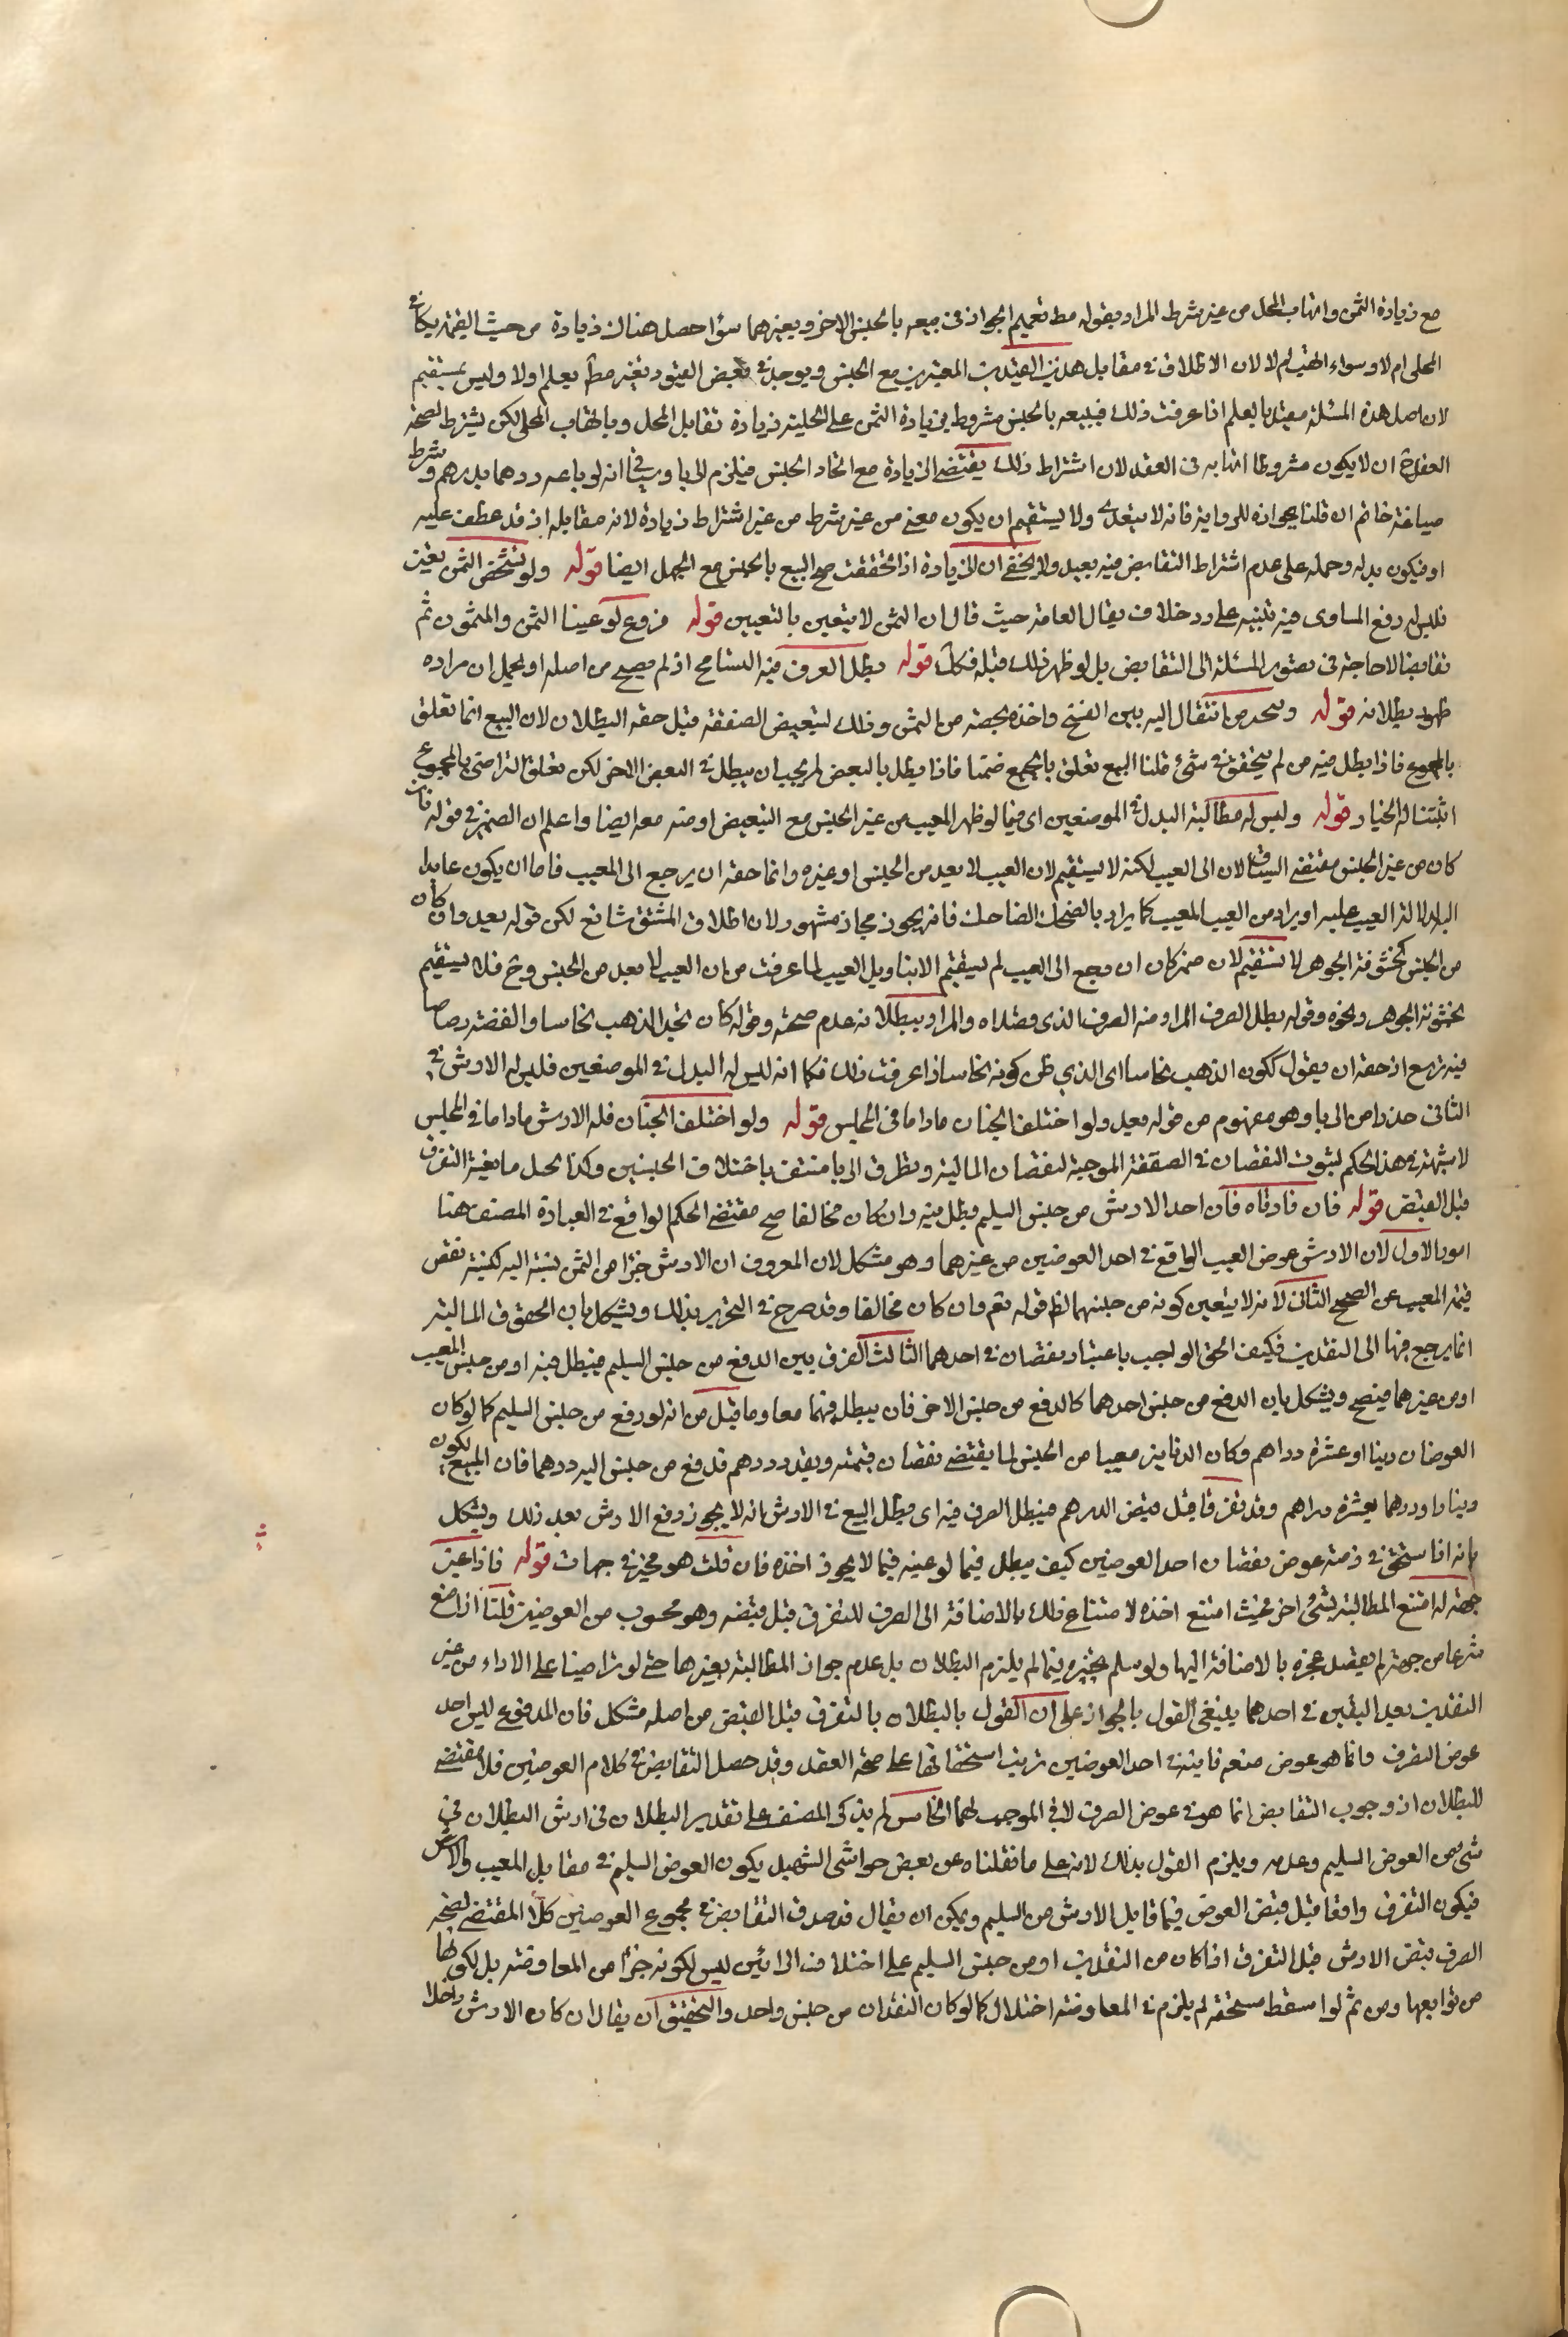 مع زيادة الثمن واتهاب المحل من غير شرط المراد بقوله مط تعميم الجواز في بيعه بالجنس الاخر وبغيرهما سواء حصل هناك زيادة من حيث القيمة
المحلى ام لا وسواء اتهب ام لا لان الاطلاق في مقابل هذين القيدين المعتبرين مع الجنس ويوجد في بعض القيود بغيره مط يعلم اولا وليس بمستقيم
لان اصل هذه المسئلة مقيد بالعلم اذا عرفت ذلك فبيعه بالجنس مشروط بزيادة الثمن على الحلية زيادة تقابل المحل وباتهاب المحل لكن يشترط لصحة
العقد ح ان لا يكون مشروطا اتهابه في العقد لان اشتراط ذلك يقتضي الزيادة مع اتحاد الجنس فيلزم الربا انه لو باعه درهما بدرهم وشرط
صياغة خاتم ان قلنا بجوازه للرواية فانه لا يتعدى ولا يستقيم ان يكون معنى من غير شرط من غير اشتراط زيادة لانه مقابله اذ قد عطف عليه
او فيكون بدله وحمله على عدم اشتراط التقابض فيه بعيد ولا يخفى ان الزيادة اذا تحققت صح البيع بالجنس مع الجهل ايضا قوله ولو تشخص الثمن تعين
فليس له دفع المساوى فيه تنبيه على رد خلاف العامة حيث قال ان الثمن لا يتعين بالتعيين قوله فروع لو عينا الثمن والمثمن ثم
تقابضا لا حاجة في تصوير المسئلة الى التقابض بل لو ظهر ذلك قبله فكك قوله بطل الصرف فيه التسامح اذ لم يصح من اصله او يحمل ان مراده
ظهور بطلانه قوله انتقال اليه بين الفسخ واخذه بحصته من الثمن وذلك لتبعيض الصفقة قيل حقه البطلان لان البيع انما تعلق
بالمجموع فاذا بطل فيه من لم يتحقق في شئ قلنا البيع تعلق بالجميع ضمنا فاذا بطل بالبعض لم يجب ان يبطل في البعض الاخر لكن تعلق التراضى بالمجموع
اثبتنا له الخيار قوله وليس له مطالبة البدل في الموضعين اى فيما لو ظهر المعيب من غير الجنس مع التبعيض او منه معه ايضا واعلم ان الضمير في قوله فان
كان من غير الجنس مقتضى السياق الان الى العيب لكنه لا يستقيم لان العيب لا يعد من الجنس او غيره وانما حقه ان يرجع الى المعيب فاما ان يكون عايدا
اليه لدلالة العيب عليه او يراد من العيب المعيب كما يراد بالضحك الضاحك فانه يجوز مجاز مشهور لان اطلاق المشتق شائع لكن قوله بعد وان كان
من الجنس كخشونة الجوهر لا تستقيم لان ضمير كان ان رجع الى العيب لم يستقيم الا بتاويل العيب لما عرفت من ان العيب لا يعد من الجنس وح فلا يستقيم
بخشونة الجوهر ونحوه وقوله بطل الصرف المراد منه الصرف الذى قصداه والمراد ببطلانه عدم صحته وقوله كان نجد الذهب نحاسا والفضة رصاصا
فيه توسع اذ حقه ان يقول ككون الذهب نحاسا اى الذي ظن كونه نحاسا اذا عرفت ذلك فكما انه ليس له البدل في الموضعين فليس له الارش في
الثانى حذرا من الربا وهو مفهوم من قوله بعد ولو اختلف الجنسان ماداما في المجلس قوله ولو اختلف الجنسان فله الارش ماداما في المجلس
لا شبهة في هذا الحكم لثبوت النقصان في الصفقة الموجبة لنقصان المالية وتطرق الربا منتف باختلاف الجنسين وكذا لم يحصل التفرق
قبل القبض قوله فان فارقاه فان اخذ الارش من جنس السليم بطل فيه وان كان مخالفا صح مقتضى الحكم الواقع في العبارة المصنف هنا
امور الاول لان الارش عوض العيب الواقع في احد العوضين من غيرهما وهو مشكل لان المعروف ان الارش جزء من الثمن نسبته اليه كنسبة نقص
قيمة المعيب عن الصحيح الثانى لانه لا يتعين كونه من جنسهما لظ قوله نعم وان كان مخالفا وقد صرح في التحرير بذلك ويشكل بان الحقوق المالية
انما يرجع فيها الى النقدين فكيف الحق الواجب باعتبار نقصان في احدهما الثالث الفرق بين الدفع من جنس السليم فيبطل فيه او من جنس المعيب
او من غيرهما فيصح ويشكل بان الدفع من جنس احدهما كالدفع من جنس الاخر فان يبطل فيهما معا وما قيل من انه لو دفع من جنس السليم كما لو كان
العوضان دينارا وعشرة دراهم وكان الدينار معيبا من الجنس لما يقتضى نقصان قيمته وبقدر درهم قد دفع من جنس السليم درهما فان المبيع يكون
دينارا ودرهما بعشرة دراهم وقد تفرقا قبل قبض الدرهم فيبطل الصرف فيه اى بطل البيع في الارش انه لا يجوز دفع الارش بعد ذلك ويشكل
بانه اذا استحق في ذمته عوض نقصان احد العوضين كيف يبطل فيما لو عينه فيما لا يجوز اخذه فان قلت هو مخير في جهات قوله فاذا عين
جهة له امتنع المطالبة بشئ اخر فحيث امتنع اخذه لامتناع ذلك بالاضافة الى الصرف للتفرق قبل قبضه وهو محسوب من العوضين قلنا اذا امتنع
شرعا من جهة لم يحصل عجزه بالاضافة اليها ولو سلم تخيره فيما لم يلزم البطلان بل عدم جواز المطالبة بغيرها حتى لو تراضيا على الاداء من غير
النقدين بعد اليقين في احدهما ينبغى القول بالجواز على ان القول بالبطلان بالتفرق قبل القبض من اصله مشكل فان المدفوع ليس احد
عوض الصرف وانما هو عوض صفة فايتة في احد العوضين ترتب استحقاقها على صحة العقد وقد حصل التقابض في كلام العوضين فلا مقتضى
للبطلان اذ وجوب التقابض انما هو في عوض الصرف لا في الموجب لهما الخامس لم يذكر المصنف على تقدير البطلان في ارش البطلان في
شئ من العوض السليم وعدمه ويلزم القول بذلك لانه على ما نقلناه عن بعض حواشى الشهيد يكون العوض السليم في مقابل المعيب والارش
فيكون التفرق واقعا قبل قبض العوض فيما قابل الارش من السليم ويمكن ان يقال قد صدق التقابض في مجموع العوضين كلا المقتضى لصحة
الصرف بقبض الارش قبل التفرق اذا كان من النقدين او من جنس السليم على اختلاف الرائين ليس لكونه جزأ من المعاوضة بل لكونها
من توابعها ومن ثم لو اسقط مستحقه لم يلزم في المعاوضة اختلال كما لو كان النقدان من جنس واحد والتحقيق ان يقال ان كان الارش داخلا